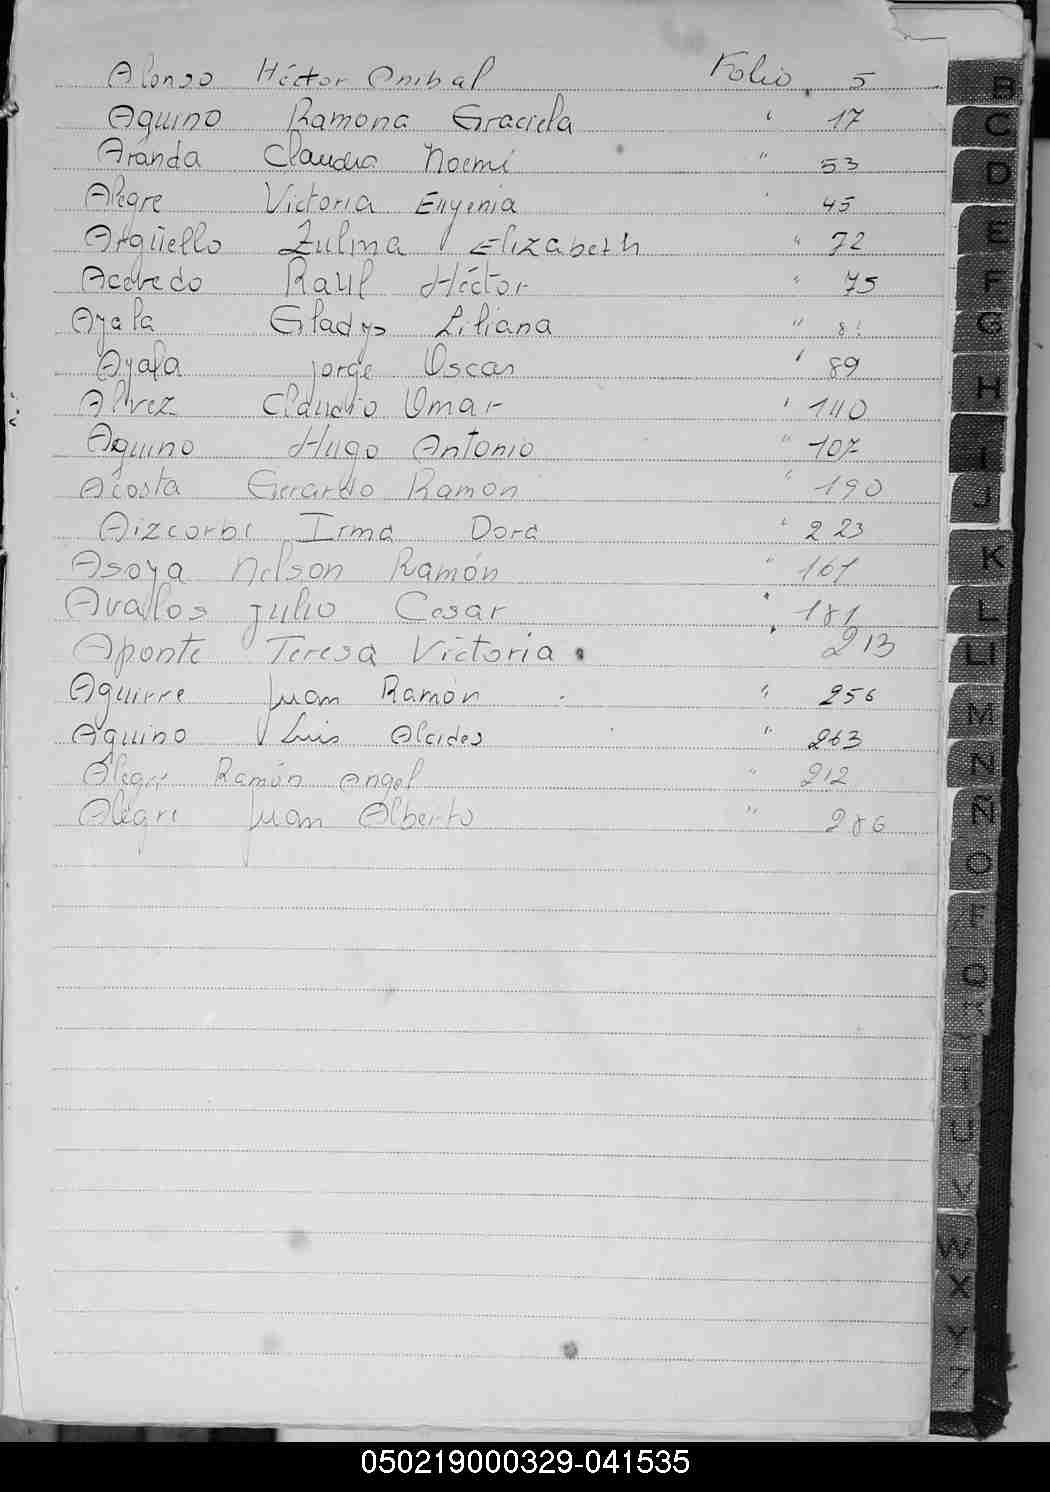 Alonso Héctor Anibal Folio 5
Aquino Ramona Graciela " 17
Aranda Claudia Noemí " 53
Alegre Victoria Eugenia " 45
Argüello Zulma Elizabeth " 72
Acevedo Raúl Héctor " 75
Ayala Gladys Liliana "
Ayala Jorge Oscar " 89
Alvez Claudio Omar " 140
Aquino Hugo Antonio " 107
Acosta Gerardo Ramon " 190
Aizcorbe Irma Dora " 223
Asoya Nelson Ramón " 161
Avallos Julio Cesar " 181
Aponte Teresa Victoria " 213
Aguirre Juan Ramón " 256
Aquino Luis Alcides " 263
Alegre Ramón Angel " 212
Alegre Juan Alberto " 286
B
C
D
E
F
G
H
I
J
K
L
Ll
M
N
Ñ
O
P
Q
T
U
V
W
X
Y
Z
050219000329-041535